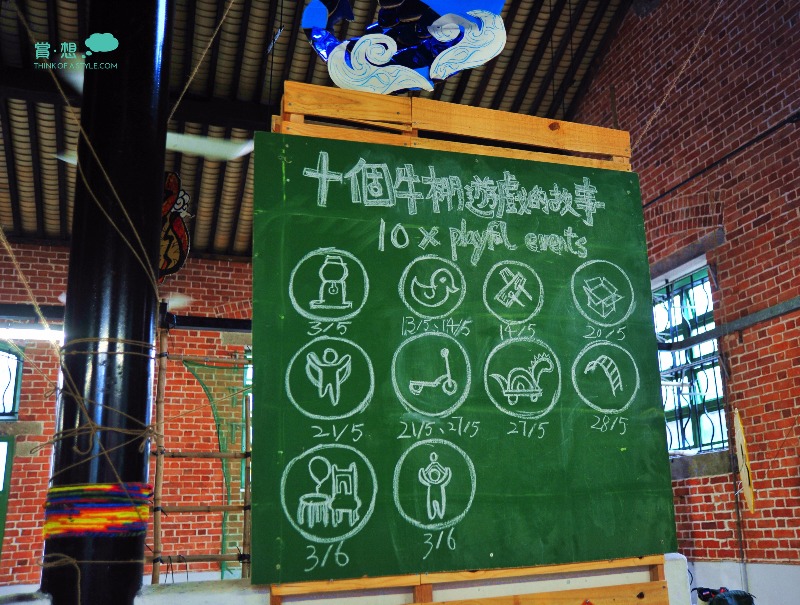 賞·想
THINKOFASTYLE.COM
十個牛棚遊戲的故事
10 x playful events
3/5
13/5、14/5
14/5
20/5
21/5
21/5、27/5
27/5
28/5
3/6
3/6